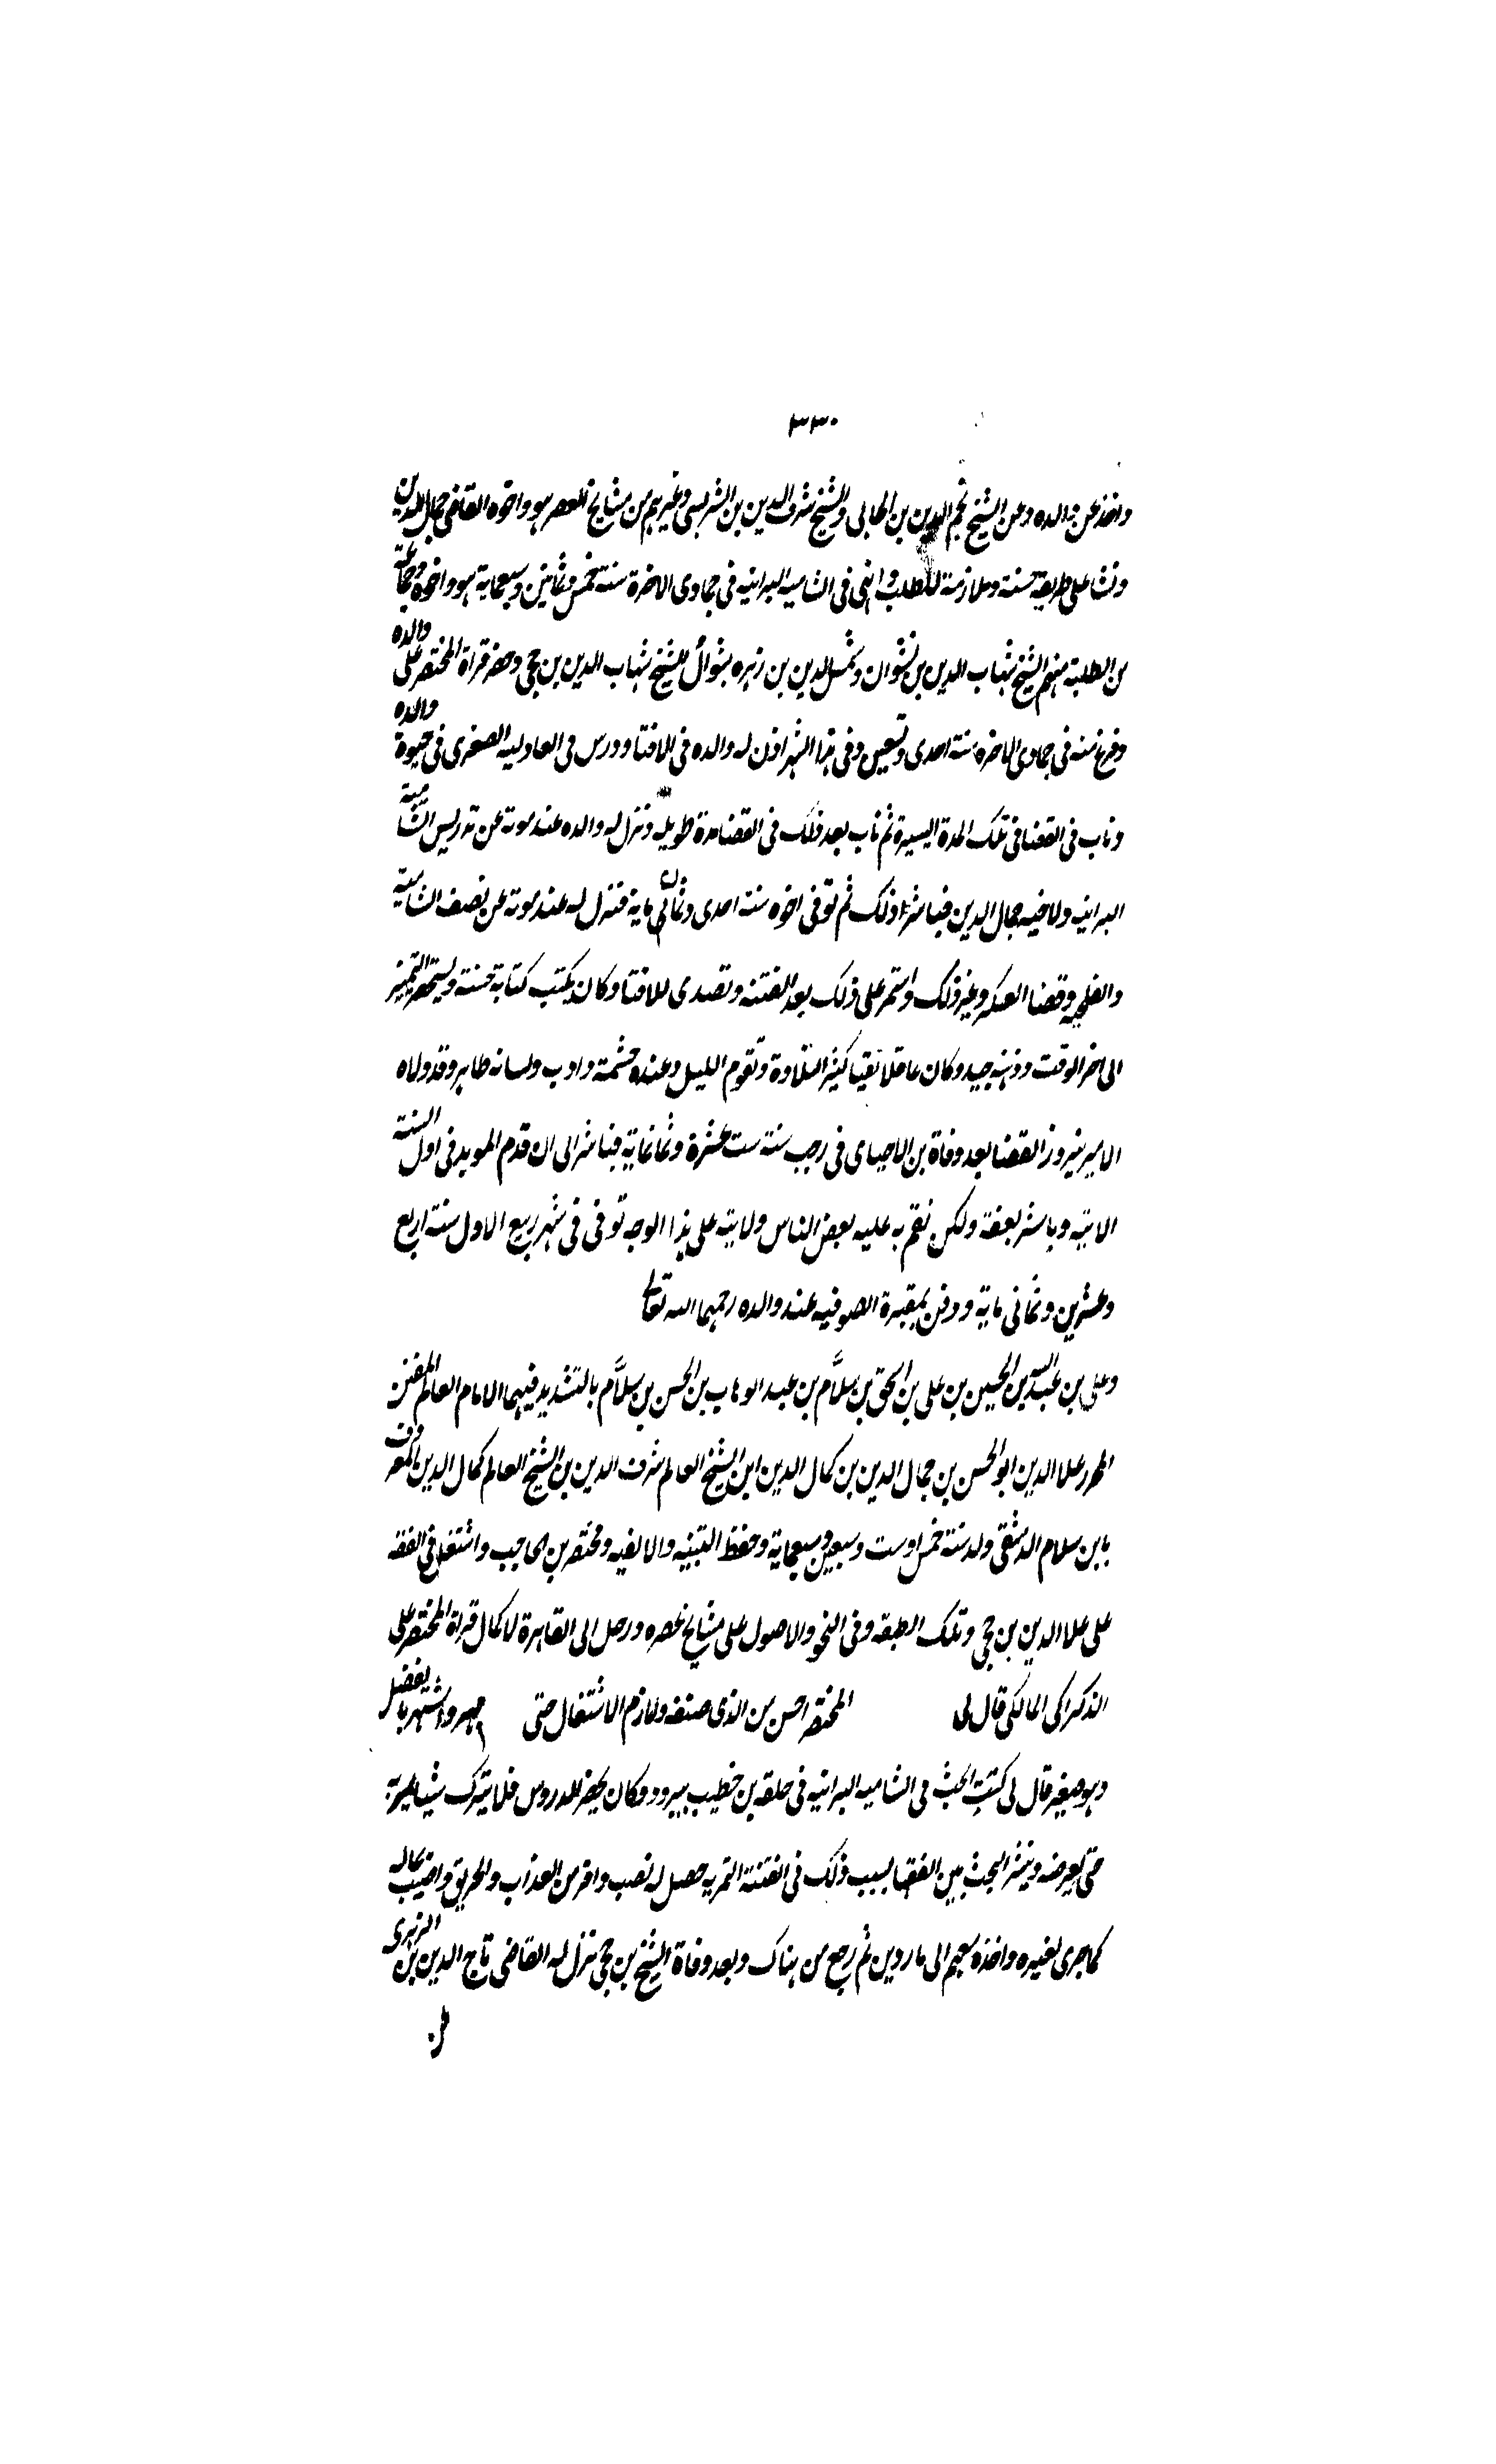 ٣٣٠
واخذ عن والده وعن الشيخ نجم الدين بن الجابى والشيخ شرف الدين بن الشريشى وغيرهم من مشايخ العصر هو واخوه القاضى جمال الدين
ونشا على طريقة حسنة وملازمة للطلب وانهى فى الشاميه البرانيه فى جمادى الاخرة سنة خمس وثمانين وسبعماية هو واخوه وجماعة
من الطلبة منهم الشيخ شهاب الدين بن نشوان وشمس الدين بن زهره بسؤال الشيخ شهاب الدين بن حجى وحضر قراة المختصر على والده
وفرغ منه فى جمادى الاخرة سنة احدى وتسعين وفى هذا الشهر اذن له والده فى الافتا ودرس فى العادليه الصغرى فى حيوة والده
وناب فى القضا فى تلك المدة اليسيرة ثم ناب بعد ذلك فى القضا مدة طويله ونزل له والده عند موته عن تدريس الشامية
البرانيه ولاخيه جمال الدين فباشرا ذلك ثم توفى اخوه سنة احدى وثمانى ماية فنزل له عند موته عن نصف الشامية
و وقضا العسكر وغير ذلك واستمر على ذلك بعد الفتنه وتصدى للافتا وكان يكتب كتابة حسنة ويستحضر التمييز
الى اخر الوقت وذهنه جيد وكان عاقلا تقيا كثير التلاوة وتقوم الليل وعنده حشمة وادب ولسانه طاهر وقد ولاه
الامير نيروز القضا بعد وفاة بن الاحباى فى رجب سنة ست عشرة وثمانماية فباشر الى ان قدم المويد فى اول السنة
الاتيه وباشر بعفة ولكن نقم به عليه بعض الناس ولايته على هذا الوجه توفى فى شهر ربيع الاول سنة اربع
وعشرين وثمانى ماية ودفن بمقبرة الصوفيه عند والده رحمهما الله تعالى
وعلى بن عبد الله بن الحسين بن على بن اسحق بن سلاَّم بن عبد الوهاب بن الحسن بن سلاَّم بالتشديد فيهما الامام العالم المفنن
علا الدين ابو الحسن بن جمال الدين بن كمال الدين ابن الشيخ العالم شرف الدين بن الشيخ العالم كمال الدين المعروف
بابن سلام الدمشقى ولد سنة خمس او ست وسبعين وسبعماية وحفظ التنبيه والالفيه ومختصر بن الحاجب واشتغل فى الفقه
على علا الدين بن حجى وتلك الطبقه وفى النحو والاصول على مشايخ عصره ورحل الى القاهرة لاكمال قراة المختصر على
الذكراكى المالكى قال لى المختصر احسن من الذى صنفه ولازم الاشتغال حتى مهر واشتهر بالفضل
وهو صغير قال لى كنت ابحث فى الشاميه البرانيه فى حلقه بن خطيب يبرود وكان يحضر للدروس فلا يترك شيئا يمر به
حتى يعرضه وينشر البحث بين الفقها بسبب ذلك فى الفتنة التمريه حصل له نصب وافر من العذاب والحريق واصيب بماله
كما جرى لغيره واخذه معهم الى ماردين ثم رجع من هناك وبعد وفاة الشيخ بن حجى نزل له القاضى تاج الدين بن الزهرى